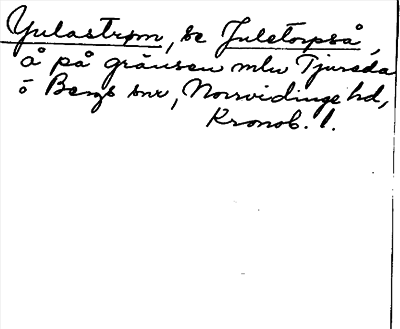 Yulastrøm, se Juletorpså,
å på gränsen mlu Tjureda
o Bergs snr, Norrvidinge hd,
Kronob. l.